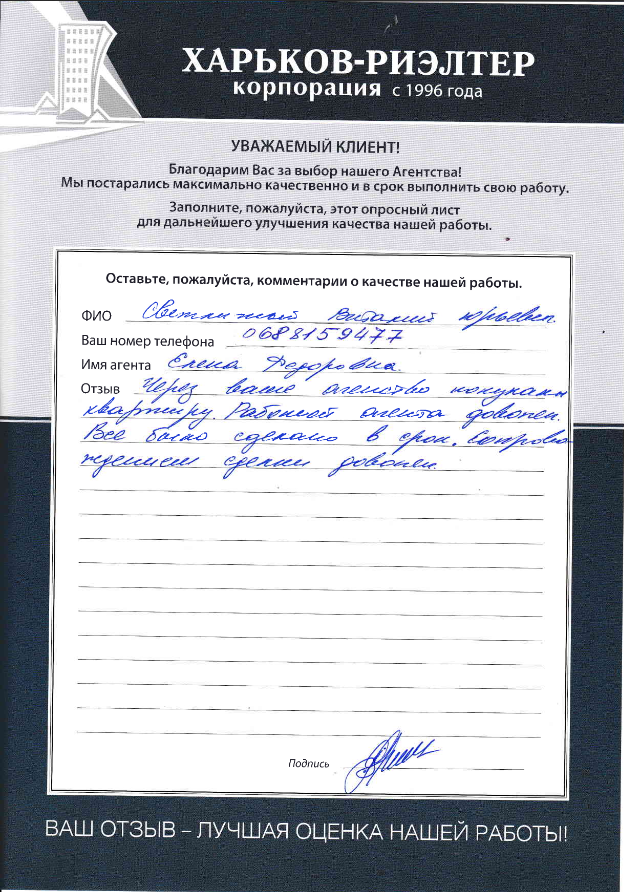 ХАРЬКОВ-РИЭЛТЕР
корпорация с 1996 года
УВАЖАЕМЫЙ КЛИЕНТ!
Благодарим Вас за выбор нашего Агентства!
Мы постарались максимально качественно и в срок выполнить свою работу.
Заполните, пожалуйста, этот опросный лист
для дальнейшего улучшения качества нашей работы.
Оставьте, пожалуйста, комментарии о качестве нашей работы.
ФИО Светличный Виталий Юрьевич
Ваш номер телефона 0688159477
Имя агента Елена Федоровна.
Отзыв Через ваше агенство покупали
квартиру. Работой агента доволен.
Все было сделано в срок. Сопрово-
ждением сделки доволен.
Подпись
ВАШ ОТЗЫВ – ЛУЧШАЯ ОЦЕНКА НАШЕЙ РАБОТЫ!